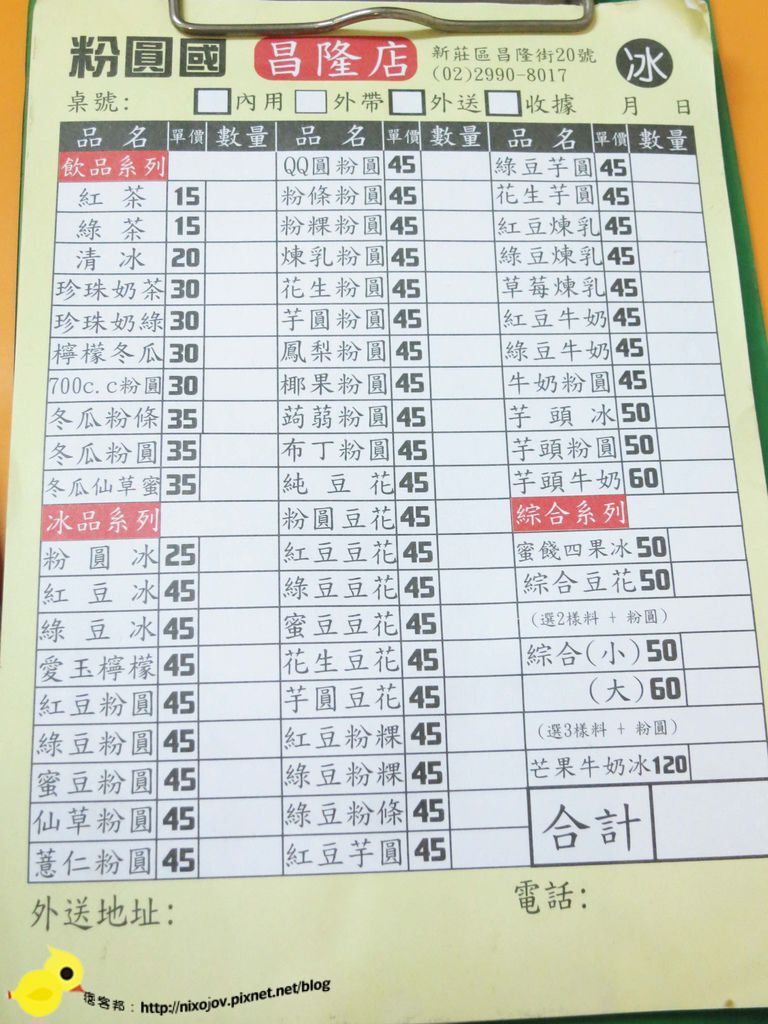 粉圓國 昌隆店 新莊區昌隆街20號
(02)2990-8017
冰
桌號: 內用 外帶 外送 收據 月 日
品名 單價 數量 品名 單價 數量 品名 單價 數量
飲品系列 QQ圓粉圓 45 綠豆芋圓 45
紅茶 15 粉條粉圓 45 花生芋圓 45
綠茶 15 粉粿粉圓 45 紅豆煉乳 45
清冰 20 煉乳粉圓 45 綠豆煉乳 45
珍珠奶茶 30 花生粉圓 45 草莓煉乳 45
珍珠奶綠 30 芋圓粉圓 45 紅豆牛奶 45
檸檬冬瓜 30 鳳梨粉圓 45 綠豆牛奶 45
700c.c粉圓 30 椰果粉圓 45 牛奶粉圓 45
冬瓜粉條 35 蒟蒻粉圓 45 芋頭冰 50
冬瓜粉圓 35 布丁粉圓 45 芋頭粉圓 50
冬瓜仙草蜜 35 純豆花 45 芋頭牛奶 60
冰品系列 粉圓豆花 45 綜合系列
粉圓冰 25 紅豆豆花 45 蜜餞四果冰 50
紅豆冰 45 綠豆豆花 45 綜合豆花 50
綠豆冰 45 蜜豆豆花 45 (選2樣料 + 粉圓)
愛玉檸檬 45 花生豆花 45 綜合(小) 50
紅豆粉圓 45 芋圓豆花 45 (大) 60
綠豆粉圓 45 紅豆粉粿 45 (選3樣料 + 粉圓)
蜜豆粉圓 45 綠豆粉粿 45 芒果牛奶冰 120
仙草粉圓 45 綠豆粉條 45 合計
薏仁粉圓 45 紅豆芋圓 45
外送地址: 電話:
痞客邦：http://nixojov.pixnet.net/blog